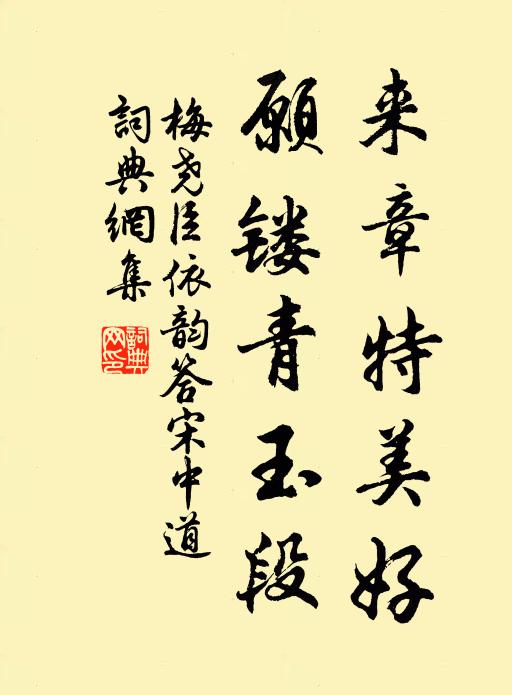 来章特美好
願镂青玉段
梅尧臣依韵答宋中道
詞典網集
詞典
网印